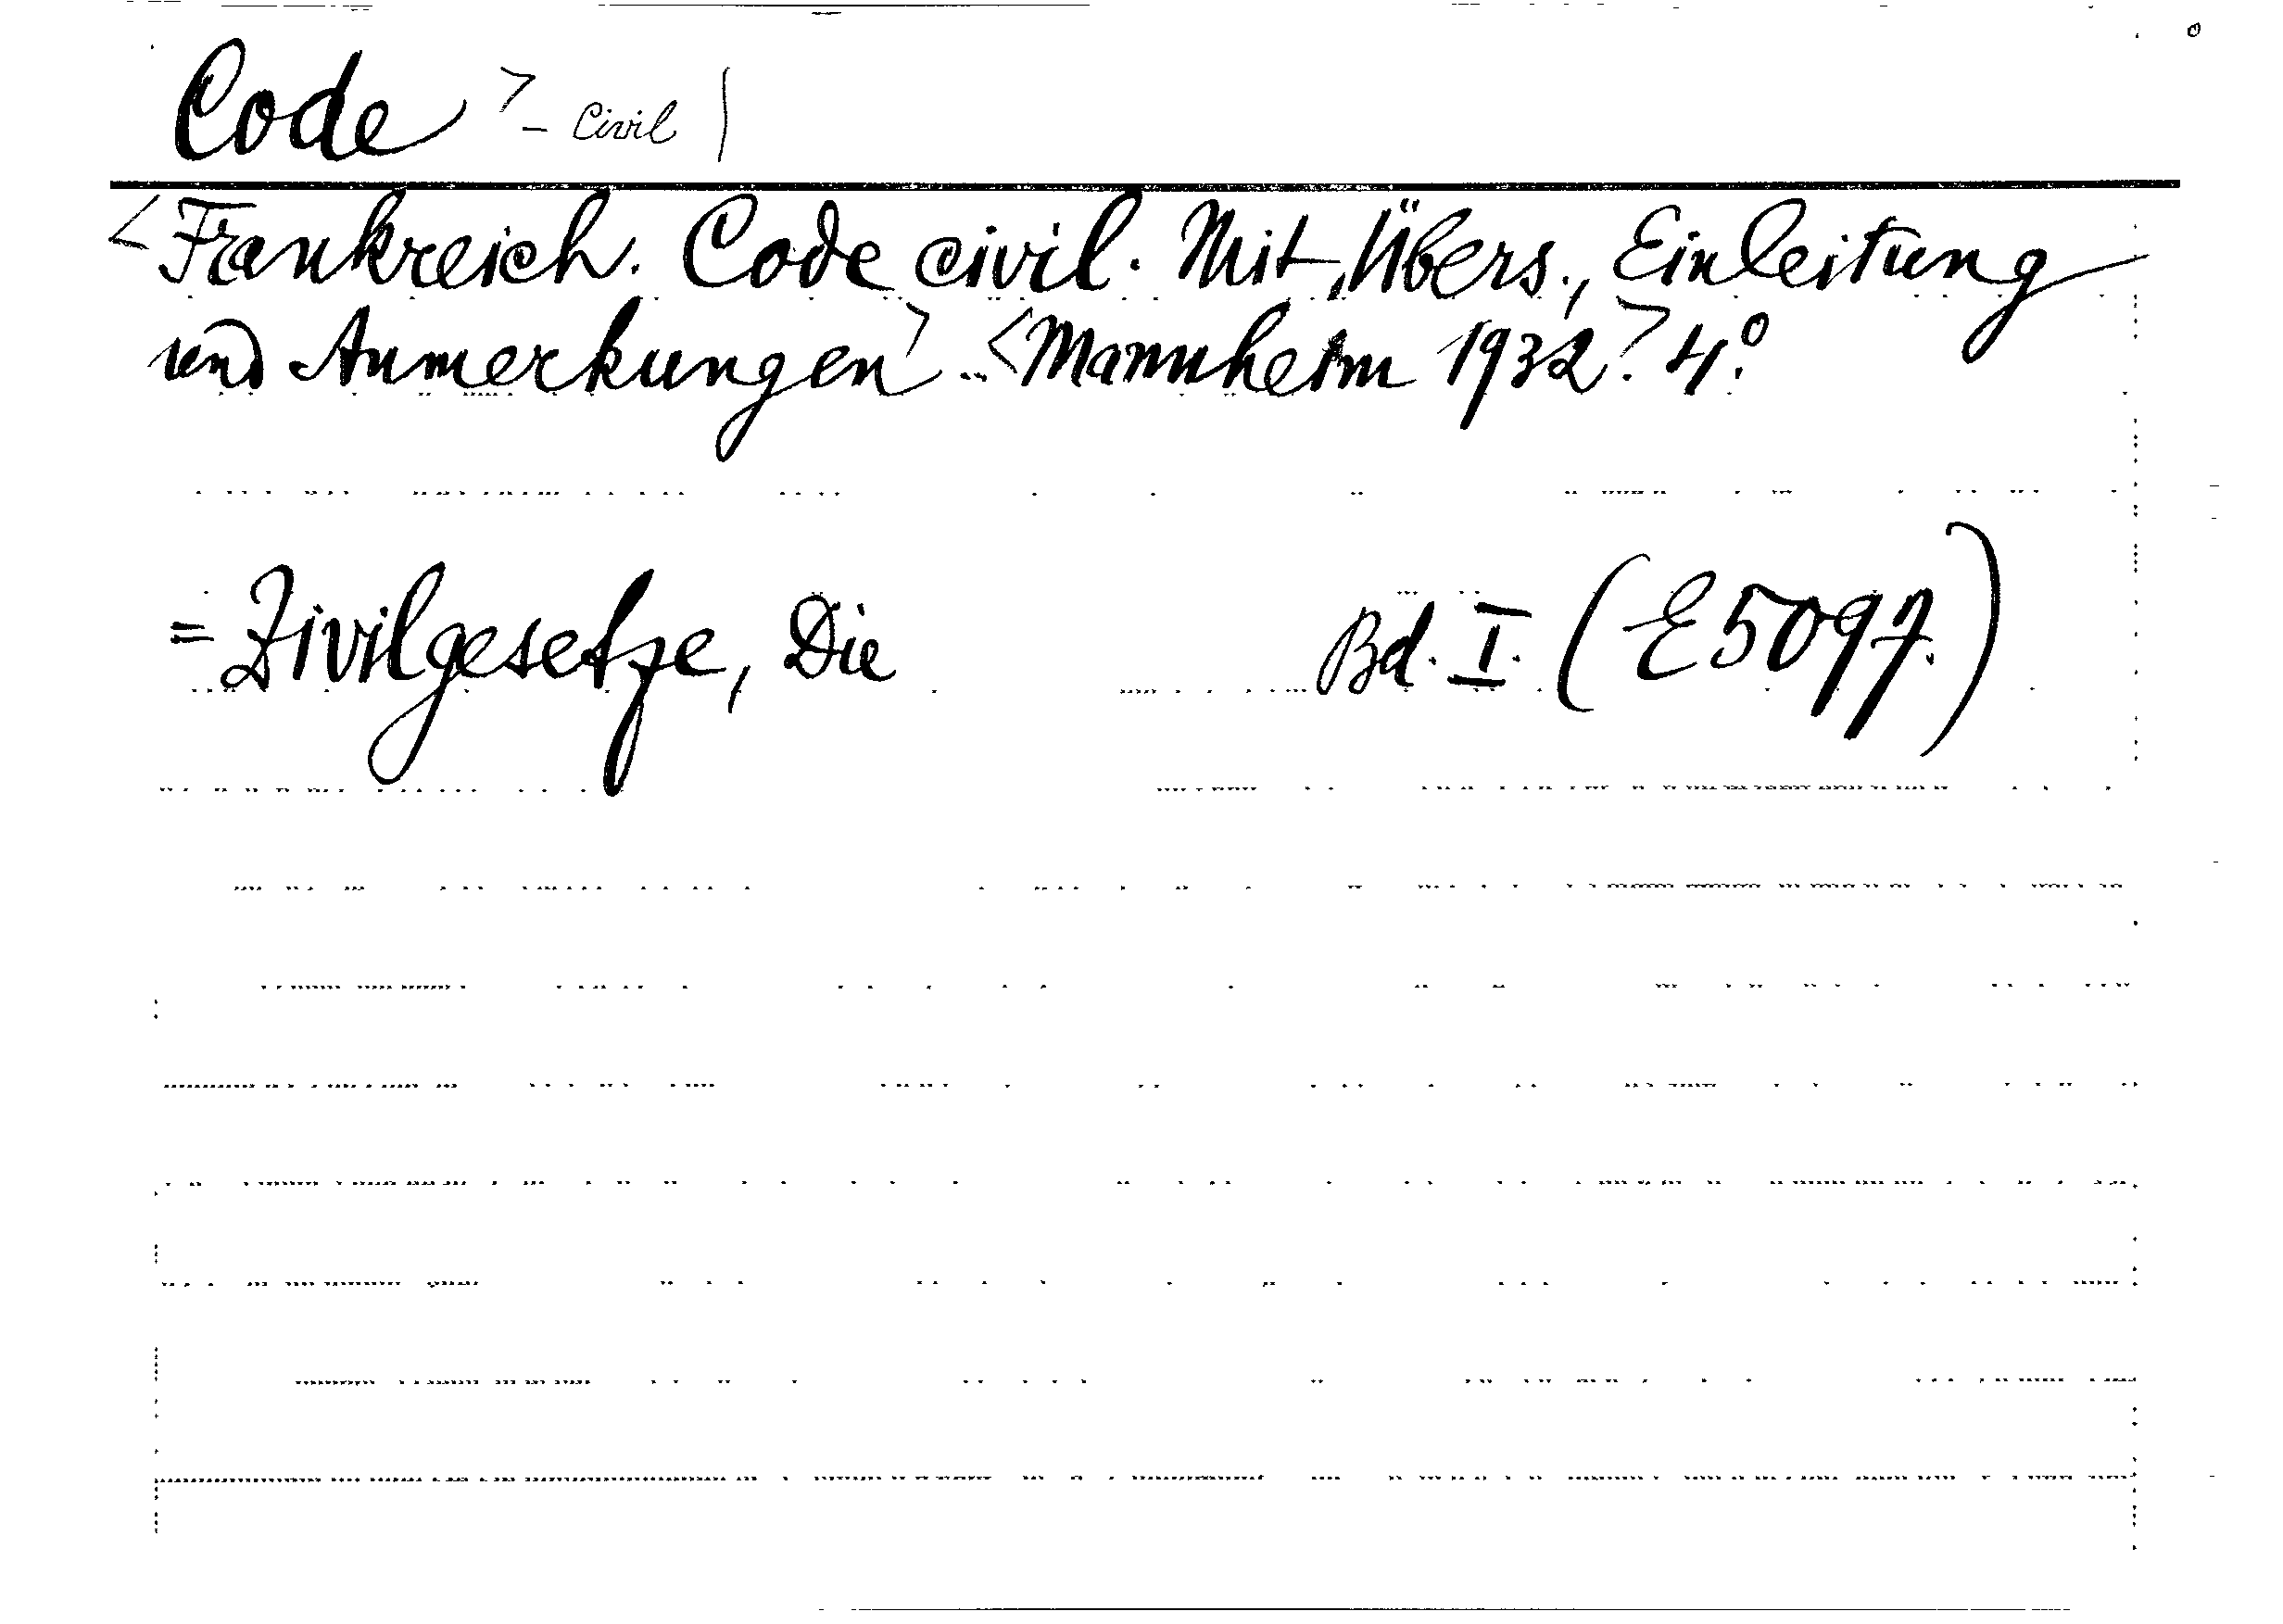 Code > - Civil |
<Frankreich. Code civil. Mit Übers., Einleitung
und Anmerkungen> .. <Mannheim 1932.> 4°.
= Zivilgesetze, Die Bd. I. (E 5097.)